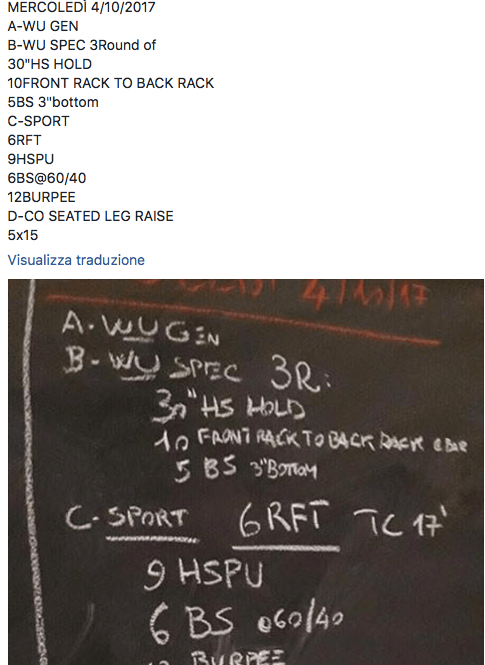 MERCOLEDÌ 4/10/2017
A-WU GEN
B-WU SPEC 3Round of
30"HS HOLD
10FRONT RACK TO BACK RACK
5BS 3"bottom
C-SPORT
6RFT
9HSPU
6BS@60/40
12BURPEE
D-CO SEATED LEG RAISE
5x15
Visualizza traduzione
4/10/17
A. WU GEN
B- WU SPEC 3R:
30" HS HOLD
10 FRONT RACK TO BACK RACK
5 BS 3"BOTTOM
C- SPORT 6RFT TC 17'
9 HSPU
6 BS @60/40
BURPEE